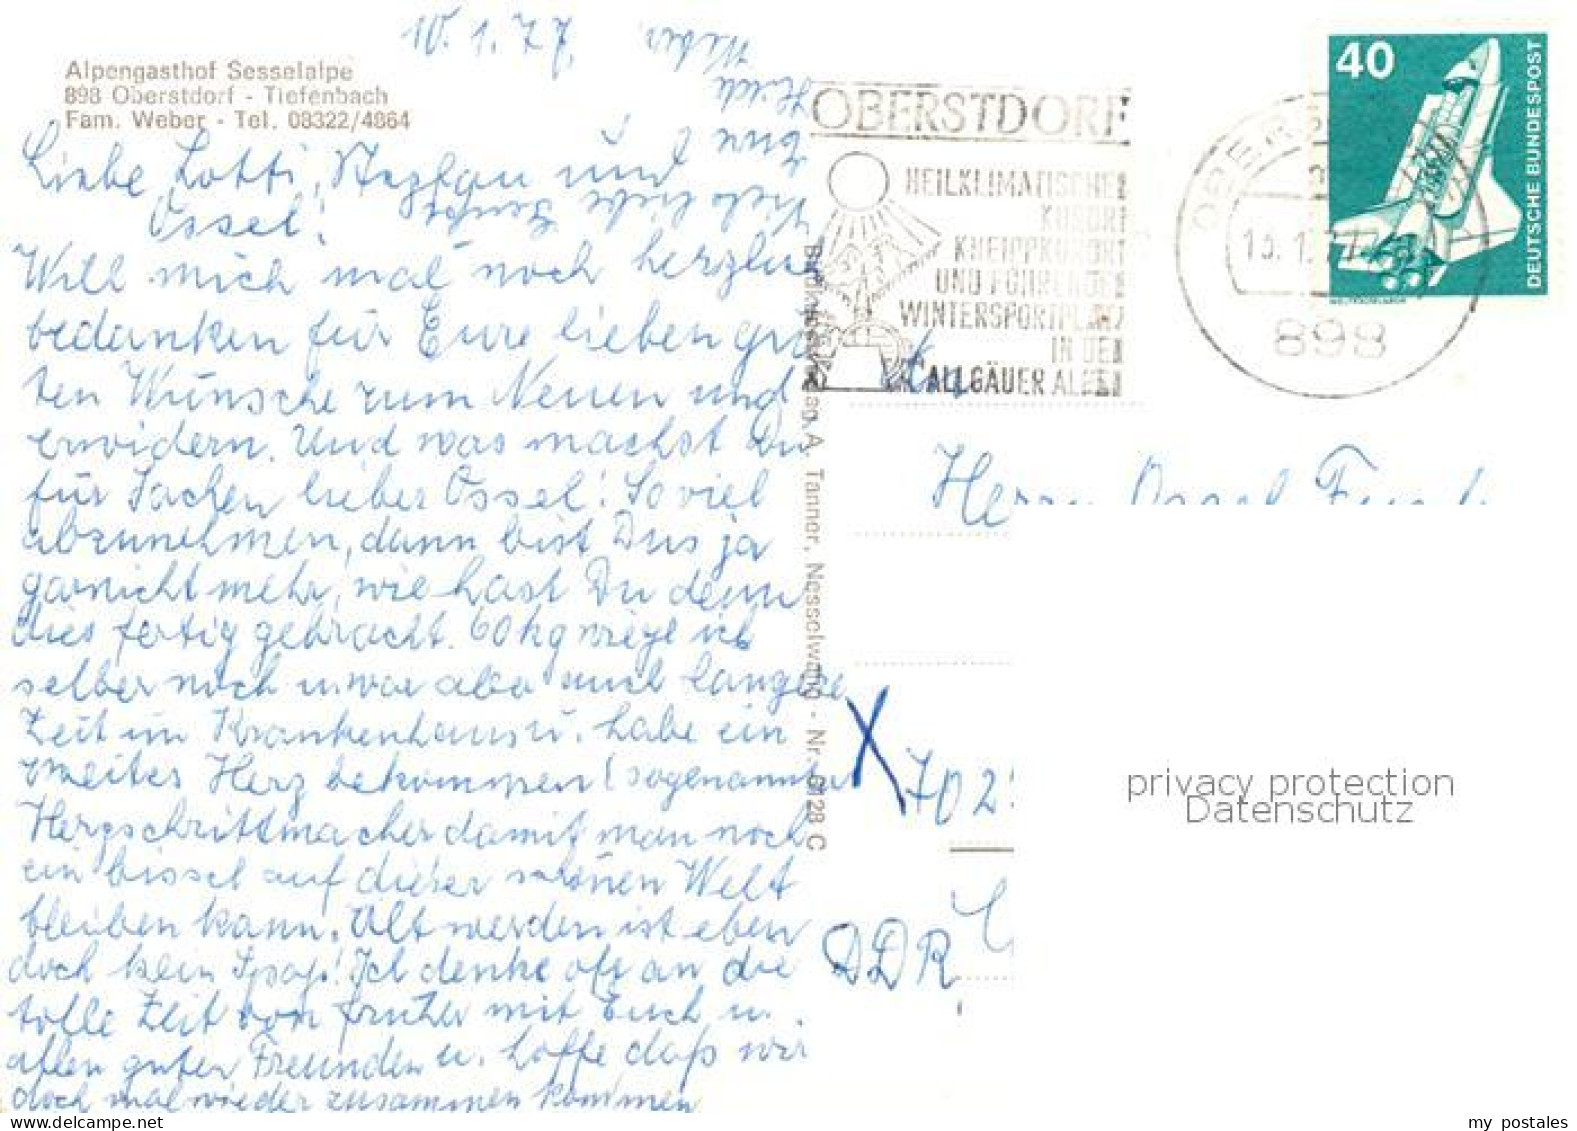 10. 1. 77.
Alpengasthof Sesselalpe
898 Oberstdorf - Tiefenbach
Fam. Weber - Tel. 08322/4864
Liebe Lotti, Stephan und
Ossel!
Will mich mal noch herzlich
bedanken für Eure lieben gu
ten Wünsche zum Neuen und
erwidern. Und was machst Du
für Sachen lieber Ossel! So viel
abzunehmen, dann bist Dus ja
garnicht mehr, wie hast Du denn
dies fertig gebracht. 60 kg wiege ich
selber noch u. war aber auch längere
Zeit im Krankenhaus u. habe ein
zweites Herz bekommen (sogenannter
Herzschrittmacher damit man noch
ein bissel auf dieser schönen Welt
bleiben kann. Alt werden ist eben
doch kein Spaß! Ich denke oft an die
tolle Zeit von früher mit Euch u.
allen guten Freunden u. hoffe daß wir
doch mal wieder zusammen kommen
Viele liebe
Eure
Heidi
Weber
OBERSTDORF
HEILKLIMATISCHER
KURORT
KNEIPPKURORT
UND FÜHRENDER
WINTERSPORTPLATZ
IN DEN
ALLGÄUER ALPEN
898
40
DEUTSCHE BUNDESPOST
A. Tanner, Nesselwang - Nr. 6128 C
Herrn Ossel
X 702
DDR
privacy protection
Datenschutz
my postales